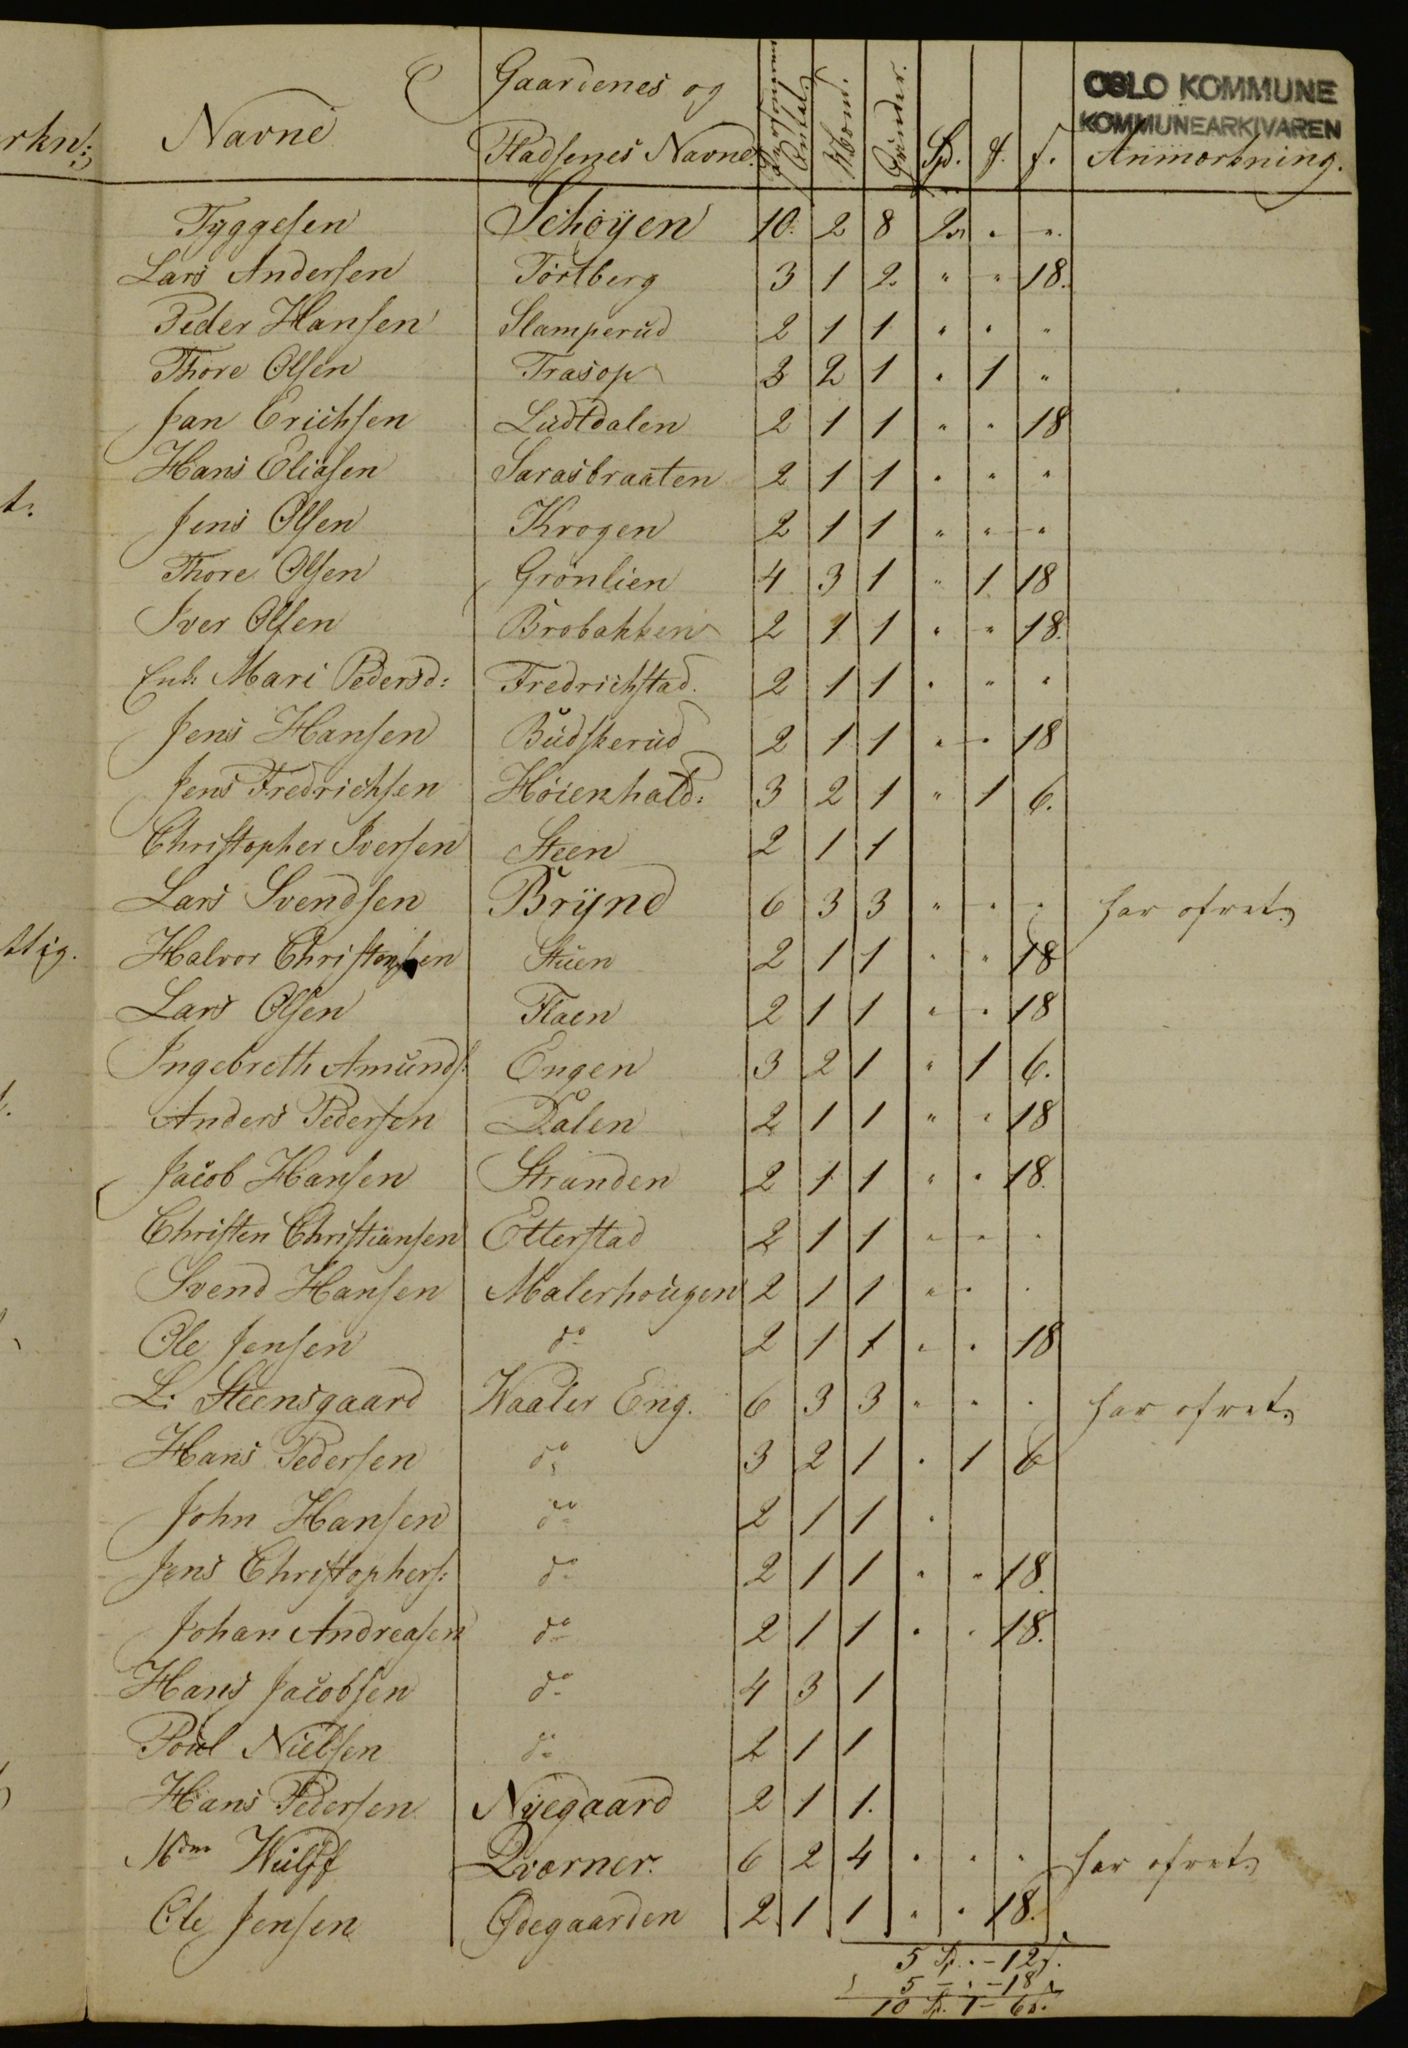 OSLO KOMMUNE
KOMMUNEARKIVAREN
rkn:
Navne Gaardenes og Pladsenes Navne. Personernes Antal Mænd. Qvinder. Sp. ß. Anmærkning.
Tyggesen Schøyen 10. 2 8 2 " "
Lars Andersen Tortberg 3 1 2 " " 18.
Peder Hansen Slamperud 2 1 1 " " "
Thore Olsen Trasop 3 2 1 " 1 "
Jan Erichsen Ludtdalen 2 1 1 " " 18
Hans Eliasen Sarasbraaten 2 1 1 " " "
Jens Olsen Krogen 2 1 1 " " "
Thore Olsen Grønlien 4 3 1 " 1 18
Iver Olsen Brobakken 2 1 1 " " 18.
Enk: Mari Pedersd: Fredrichstad. 2 1 1 " " "
Jens Hansen Budskerud 2 1 1 " " 18
Jens Fredrichsen Høienhald: 3 2 1 " 1 6.
Christopher Iversen Steen 2 1 1
Lars Svendsen Brynd 6 3 3 " " " har ofret.
Halvor Stuen 2 1 1 " " 18
Lars Olsen Flaen 2 1 1 " " 18
Ingebreth Amunds: Engen 3 2 1 " 1 6.
Anders Pedersen Dalen 2 1 1 " " 18
Jacob Hansen Stranden 2 1 1 " " 18.
Christen Christiansen Etterstad 2 1 1 " " "
Svend Hansen Malerhougen 2 1 1 " " "
Ole Jensen do 2 1 1 " " 18
L: Steensgaard Waaler Eng. 6 3 3 " " " har ofret.
Hans Pedersen do 3 2 1 " 1 6
John Hansen do 2 1 1 "
Jens Christophers: do 2 1 1 " " 18.
Johan Andreasen do 2 1 1 " " 18.
Hans Jacobsen do 4 3 1
Poul Nielsen do 2 1 1
Hans Pedersen Nyegaard 2 1 1.
Mdm Wulff Qværner. 6 2 4 " " " har ofret.
Ole Jensen Ødegaarden 2 1 1 " " 18.
5 Sp. " - 12 ß.
5 - " - 18
10 Sp. 1 - 6 ß.